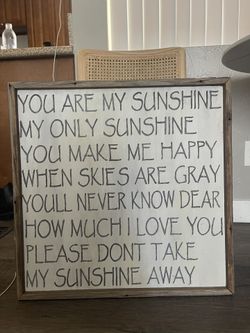 YOU ARE MY SUNSHINE
MY ONLY SUNSHINE
YOU MAKE ME HAPPY
WHEN SKIES ARE GRAY
YOULL NEVER KNOW DEAR
HOW MUCH I LOVE YOU
PLEASE DONT TAKE
MY SUNSHINE AWAY